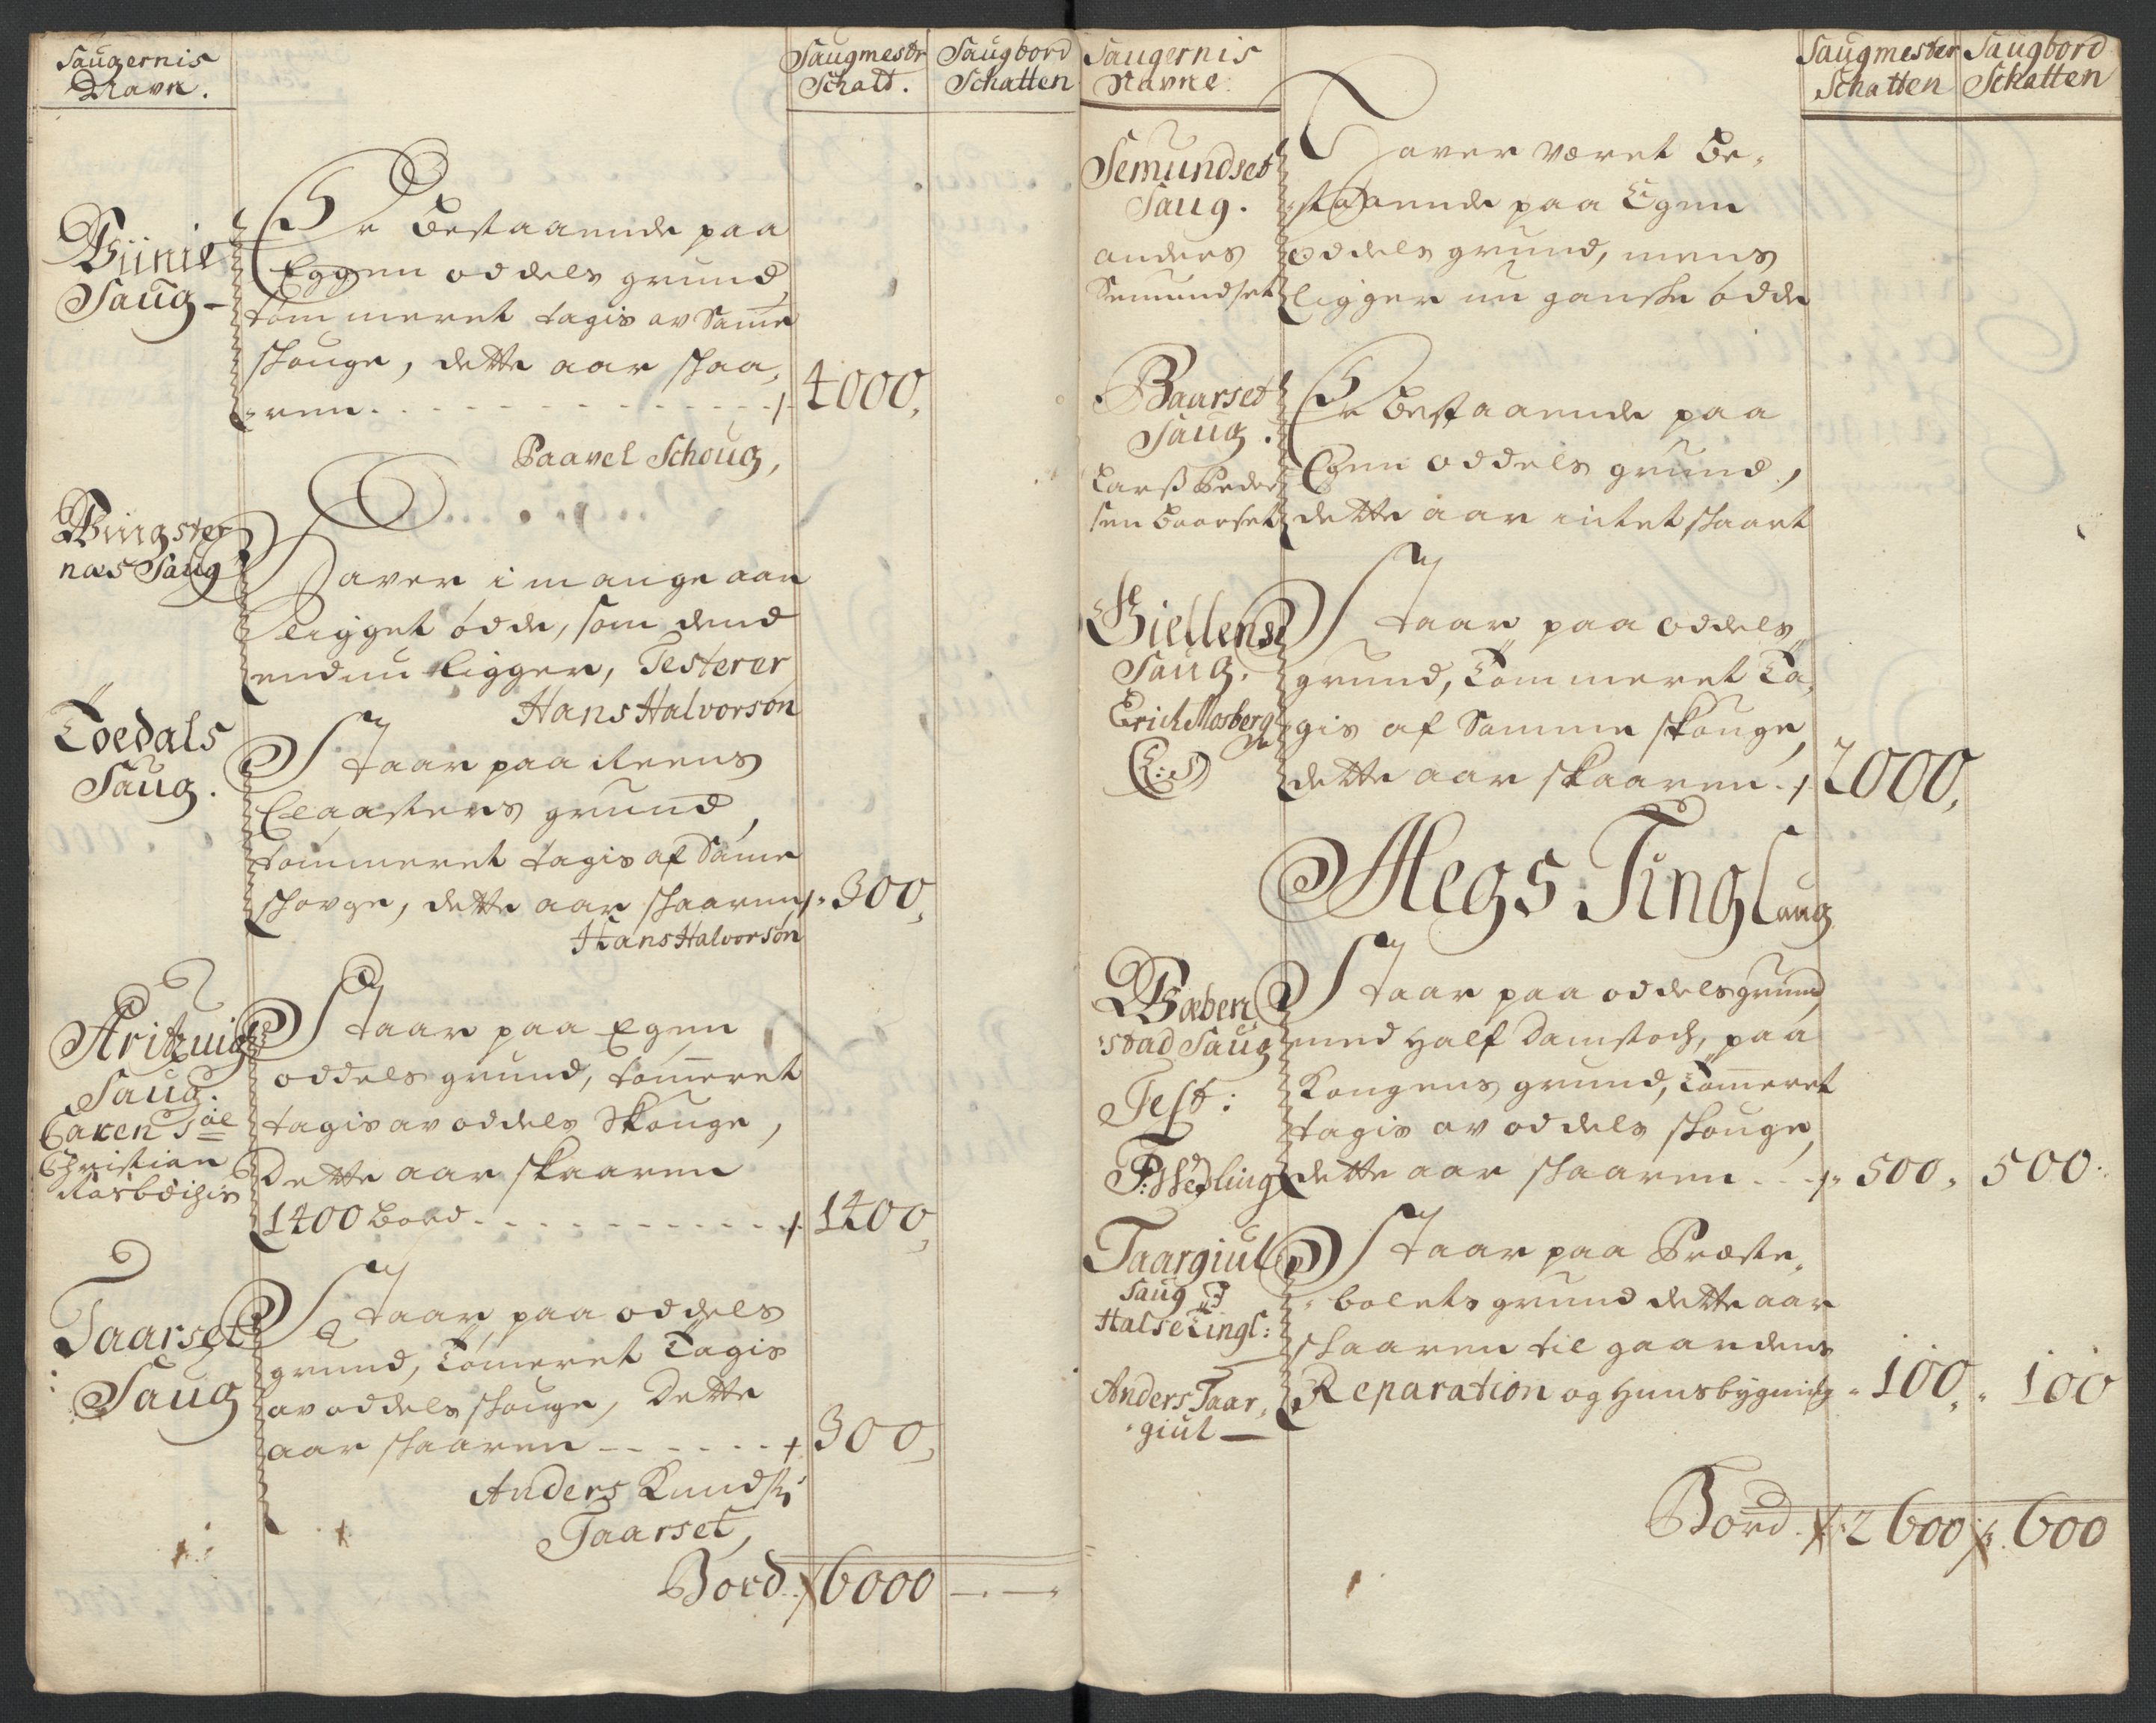 Saugernis
Navn.
Saugmestr
Schatt.
Saugbord
Schatten
Saug
Er bestaaende paa
Eggen oddels grund,
tommeret tagis av Same
skouge, dette aar skaa,
ren 4000,
Paavel Schoug,
næs Saug
Haver i mange aar
ligget ödde, som dend
endnu ligger, Testerer
Hans Halvorsön
Toedals
Saug.
Staar paa Reens
Claasters grund,
tommeret tagis af Same
skovge, dette aar skaaren 300,
Hans Halvorsön
Saug.
Christian
Staar paa Egen
oddels grund, tomeret
tagis av oddels Skouge,
Dette aar skaaren
1400 bord 1400,
Taarset
Saug
Staar paa oddels
grund, Tömeret Tagis
av oddels skouge, Dette
aar skaaren 300,
Anders Knuds:
Taarset,
Bord 6000
Saugernis
Navne.
Saugmester
Schatten
Saugbord
Schatten
Semundset
Saug.
anders
Semundset
Haver været be,
staaende paa Egen
oddels grund, mens
ligger nu ganske ödde
Baarset
Saug.
Larss Peder
sen Baarset
Er bestaaende paa
Egen oddels grund,
dette aar intet skaart
Saug.
Erich Mosberg
Staar paa oddels
grund, Tommeret Ta,
gis af Samme skouge,
dette aar skaaren 2000,
Alegs Tinglaug
Bæben
stad Saug
Test:
Staar paa oddels grund,
med half Damstoch, paa
Kongens grund, Tomeret
tagis av oddels skouge,
dette aar skaaren 500, 500.
Taargiul
Saug
Halse Tingl:
Anders Taar,
giul
Staar paa Præste,
bolets grund dette aar
skaaren til gaardens
Reparation og Huusbygning 100, 100
Bord 2600 600